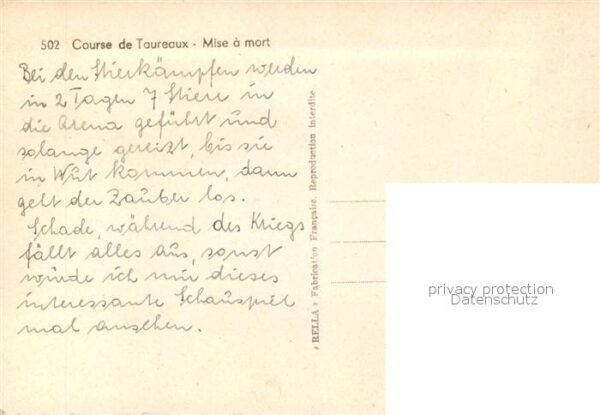 502 Course de Taureaux - Mise à mort
Bei den Stierkämpfen werden
in 2 Tagen 7 Stiere in
die Arena geführt und
solange gereizt, bis sie
in Wut kommen, dann
geht der Zauber los.
Schade, während des Kriegs
fällt alles aus, sonst
würde ich mir dieses
interessante Schauspiel
mal ansehen.
« RELLA » Fabrication Française. Reproduction interdite
privacy protection
Datenschutz